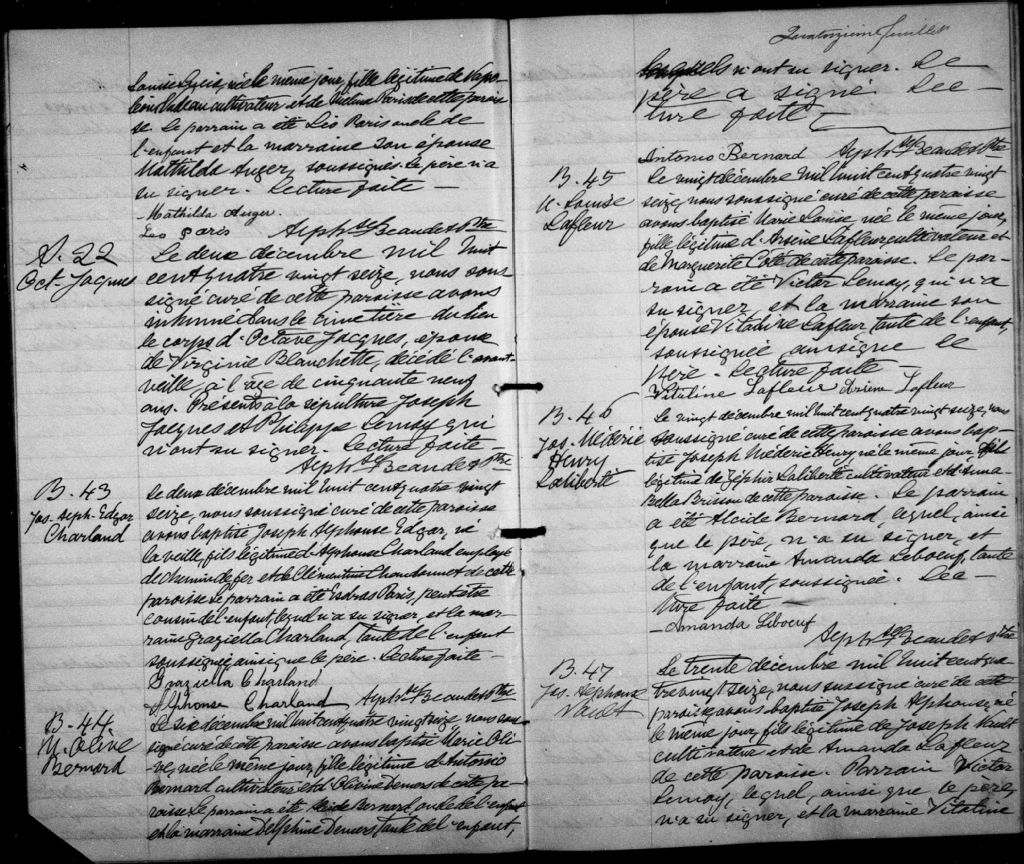 Louise née le même jour, fille légitime de Napo-
léon cultivateur et de Paris de cette parois-
se. Le parrain a été Léo Paris oncle de
l'enfant et la marraine son épouse
Mathilda Auger, soussignés. Le père n'a
su signer. Lecture faite —
Mathilda Auger.
Leo Paris Alph. Beaudet Ptre
S. 22
Oct. Jacques
Le deux décembre mil huit
cent quatre vingt seize, nous sous
signé curé de cette paroisse avons
inhumé dans le cimetière du lieu
le corps d'Octave Jacques, époux
de Virginie Blanchette, décédé l'avant
veille, à l'âge de cinquante neuf
ans. Présents à la sépulture Joseph
Jacques et Philippe Lemay qui
n'ont su signer. Lecture faite —
Alph. Beaudet Ptre
B. 43
Jos. Alph. Edgar
Charland
Le deux décembre mil huit cent quatre vingt
seize, nous soussigné curé de cette paroisse
avons baptisé Joseph Alphonse Edgar, né
la veille, fils légitime d'Alphonse Charland employé
de chemin de fer et de Clémentine Chandonnet de cette
paroisse. Le parrain a été Esdras Paris, petit
cousin de l'enfant, lequel n'a su signer, et la mar-
raine Graziella Charland, tante de l'enfant
soussignée, ainsi que le père. Lecture faite —
Graziella Charland
Alphonse Charland Alph. Beaudet Ptre
B. 44
M. Olive
Bernard
Le six décembre mil huit cent quatre vingt seize nous sous-
signé curé de cette paroisse avons baptisé Marie Oli-
ve, née le même jour, fille légitime d'Antonio
Bernard cultivateur et d'Olivine Demers de cette pa-
roisse. Le parrain a été Alcide Bernard, oncle de l'enfant
et la marraine Delphine Demers tante de l'enfant,
Quatorzième feuillet
lesquels n'ont su signer. Le
père a signé Lec-
ture faite —
Antonio Bernard Alph. Beaudet Ptre
B. 45
M. Louise
Lafleur
Le vingt décembre mil huit cent quatre vingt
seize, nous soussigné curé de cette paroisse
avons baptisé Marie Louise, née le même jour,
fille légitime d'Arsène Lafleur cultivateur et
de Marguerite Côté de cette paroisse. Le par-
rain a été Victor Lemay, qui n'a
su signer, et la marraine son
épouse Vitaline Lafleur tante de l'enfant,
soussignée, ainsi que le
père. Lecture faite —
Vitaline Lafleur Arsène Lafleur
B. 46
Jos. Médéric
Henry
Laliberté
Le vingt décembre mil huit cent quatre vingt seize, nous
soussigné curé de cette paroisse avons bap-
tisé Joseph Médéric Henry né le même jour, fils
légitime de Zéphir Laliberté cultivateur et d'Anna
Bella Brisson de cette paroisse. Le parrain
a été Alcide Bernard, lequel, ainsi
que le père, n'a su signer, et
la marraine Amanda Leboeuf, tante
de l'enfant, soussignée. Lec-
ture faite —
Amanda Leboeuf
Alph. Beaudet Ptre
B. 47
Jos. Alphonse
Nault
Le trente décembre mil huit cent qua
tre vingt seize, nous soussigné curé de cette
paroisse, avons baptisé Joseph Alphonse, né
le même jour, fils légitime de Joseph Nault
cultivateur et de Amanda Lafleur
de cette paroisse. Parrain Victor
Lemay, lequel, ainsi que le père,
n'a su signer, et la marraine Vitaline